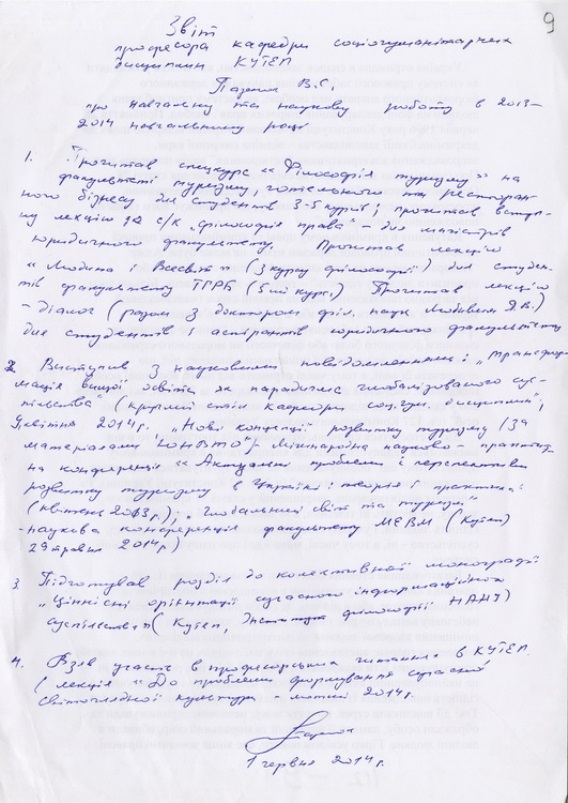 9
Звіт
професора кафедри соціогуманітарних
дисциплін КУТЕП
Пазенка В.С.
про навчальну та наукову роботу в 2013-
2014 навчальному році
1. Прочитав спецкурс „Філософія туризму" на
факультеті туризму, готельного та ресторан
ного бізнесу для студентів 3-5 курсів; прочитав вступ-
ну лекцію до с/к „Філософія права" - для магістрів
юридичного факультету. Прочитав лекцію
„Людина і Всесвіт" (З курсу філософії) для студен-
тів факультету ТГРБ (5ий курс) Прочитав лекцію
- діалог (разом з доктором філ. наук Любивим Я.В.)
для студентів і аспірантів юридичного факультету
2. Виступив з науковими повідомленнями: „Трансфор-
мація вищої освіти як парадигма глобалізованого сус-
пільства" (круглий стіл кафедри соц.гум. дисциплін",
квітня 2014р. „Нові концепції розвитку туризму (За
матеріалами ЮНВТО") Міжнародна науково-практич
на конференція „Актуальні проблеми і перспективи
розвитку туризму в Україні: теорія і практика:
(2013р); „Глобальний світ та туризм"
-наукова конференція факультету МЕВМ (Кутеп)
29 травня 2014р)
3. Підготував розділ до колективної монографії
„Ціннісні орієнтації сучасного інформаційного
суспільства" (Кутеп, Інститут філософії НАНУ)
4. Взяв участь в професорських читаннях в КУТЕП
(лекція „До проблеми формування сучасної
світоглядної культури - 2014р.
1 червня 2014г.